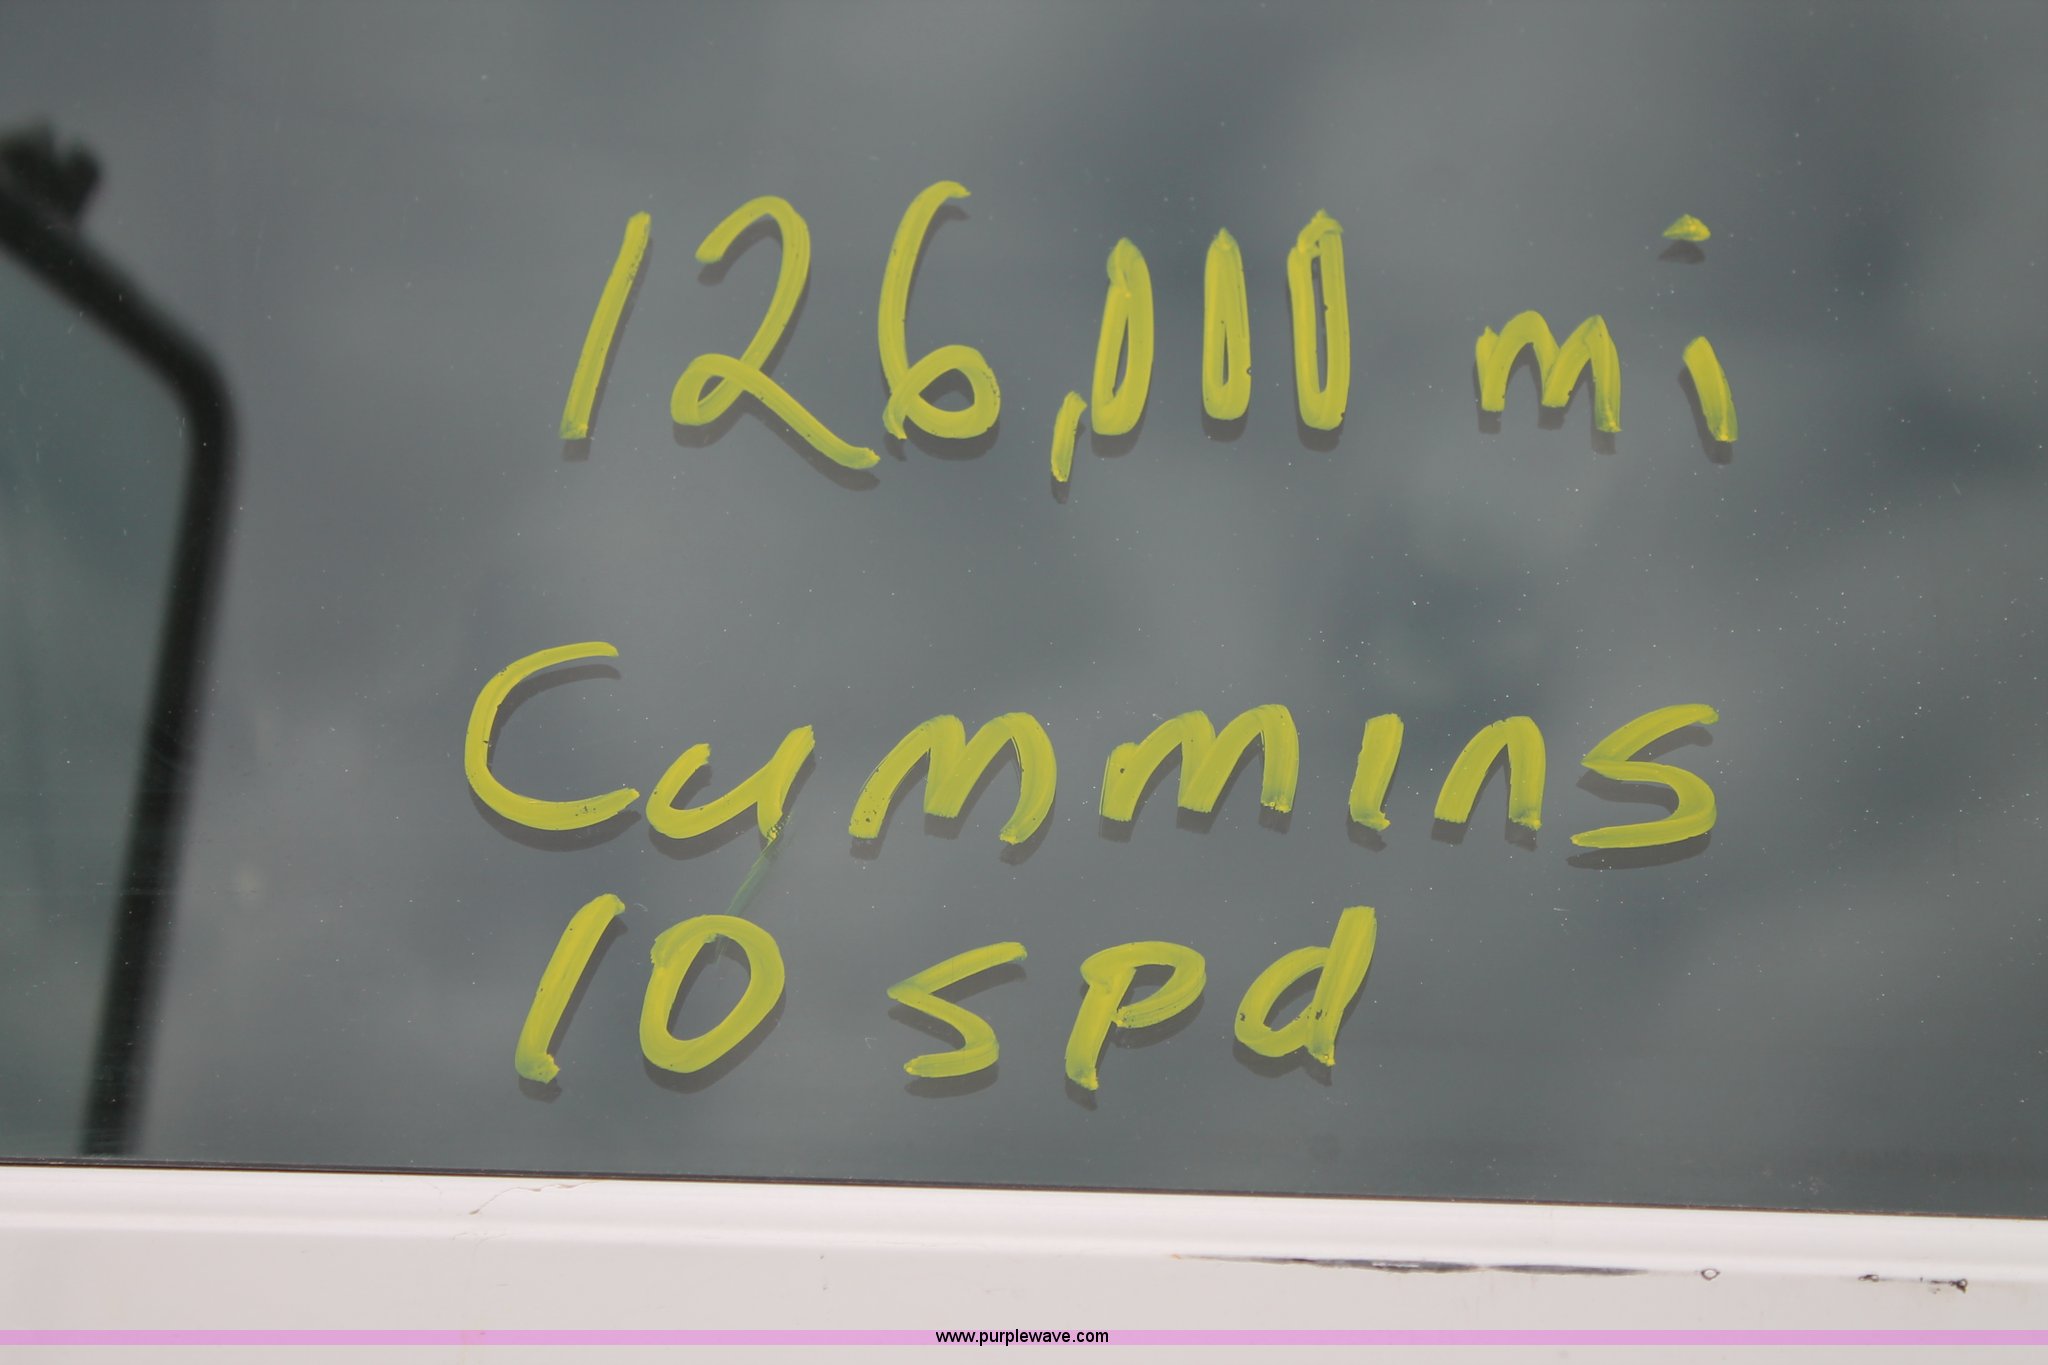 126,000 mi
Cummins
10 spd
www.purplewave.com